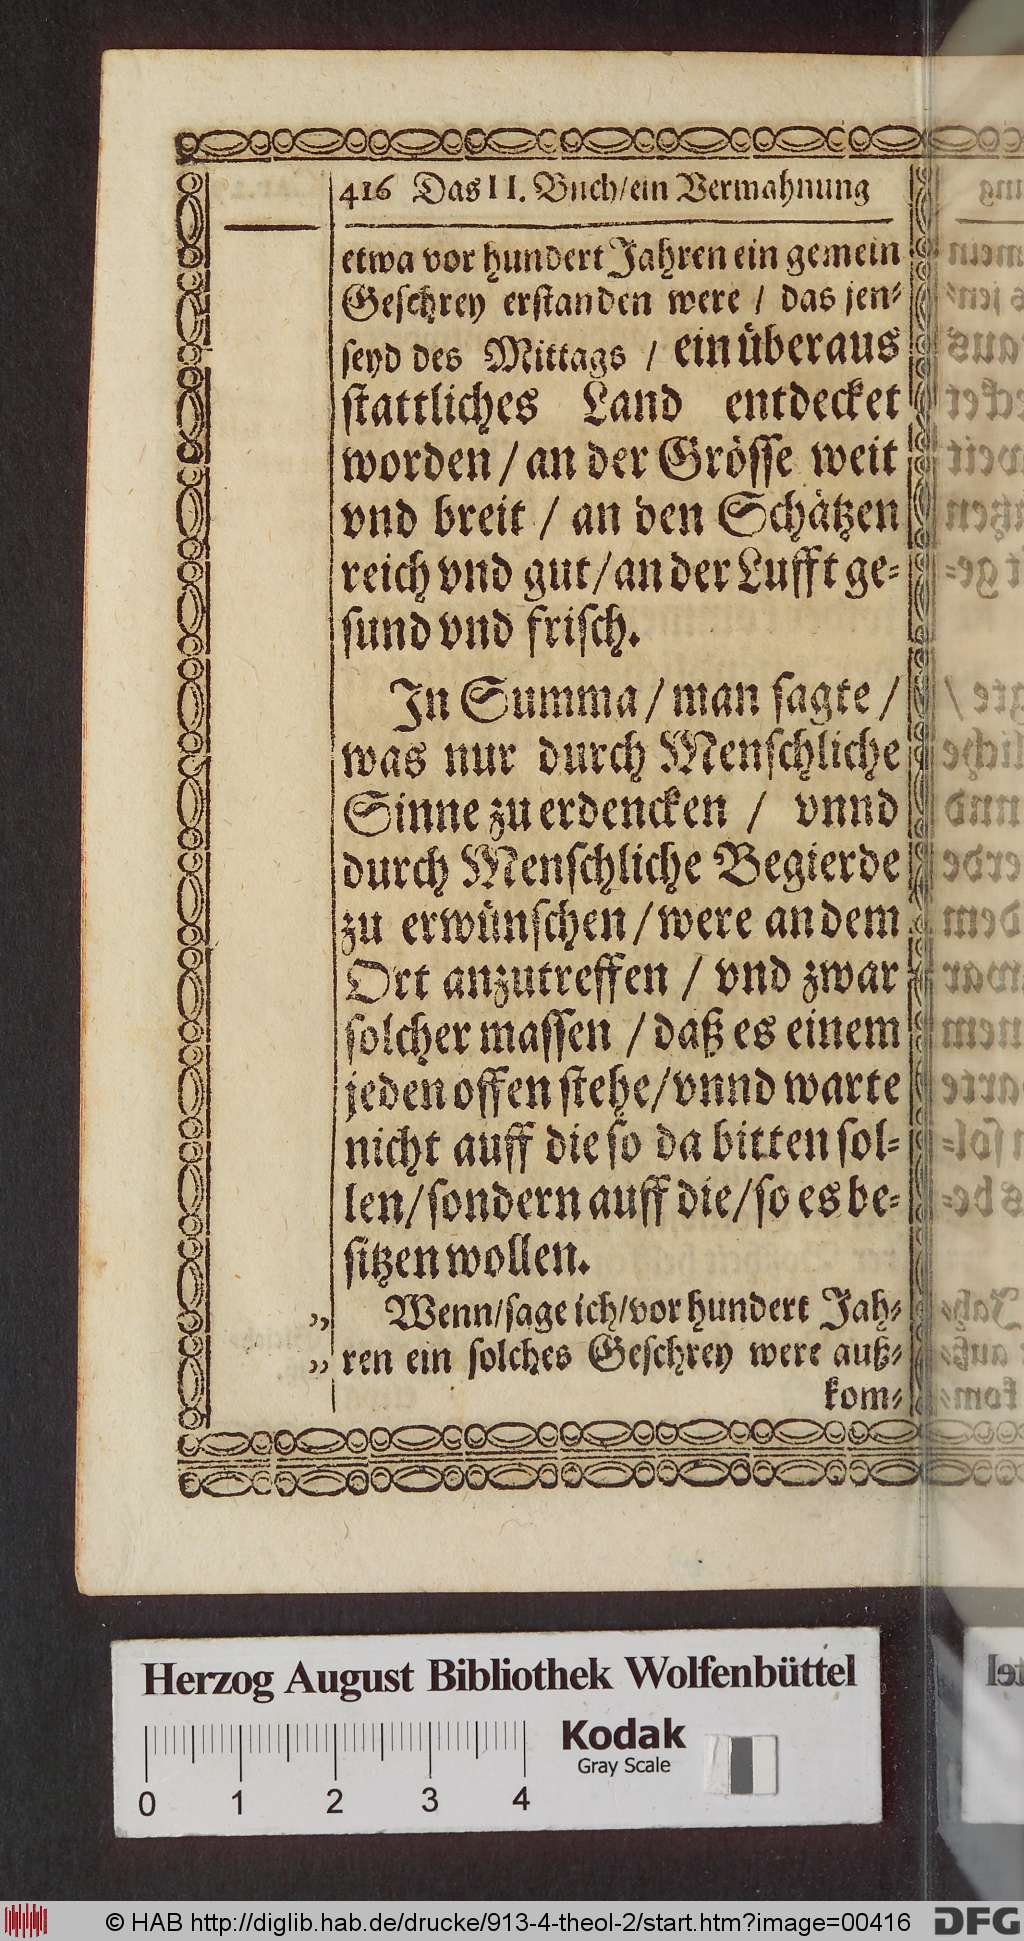 416 Das II. Buch/ein Vermahnung
etwa vor hundert Jahren ein gemein
Geschrey erstanden were / das jen-
seyd des Mittags / ein überaus
stattliches Land entdecket
worden/an der Grösse weit
vnd breit / an den Schätzen
reich vnd gut/an der Lufft ge-
sund vnd frisch.
In Summa/man sagte/
was nur durch Menschliche
Sinne zu erdencken / vnnd
durch Menschliche Begierde
zu erwünschen/were an dem
Ort anzutreffen / vnd zwar
solcher massen / daß es einem
jeden offen stehe/vnnd warte
nicht auff die so da bitten sol-
len/sondern auff die/so es be-
sitzen wollen.
„ Wenn/sage ich/vor hundert Jah-
„ ren ein solches Geschrey were auß-
kom-
Herzog August Bibliothek Wolfenbüttel
Kodak
Gray Scale
0 1 2 3 4
© HAB http://diglib.hab.de/drucke/913-4-theol-2/start.htm?image=00416 DFG